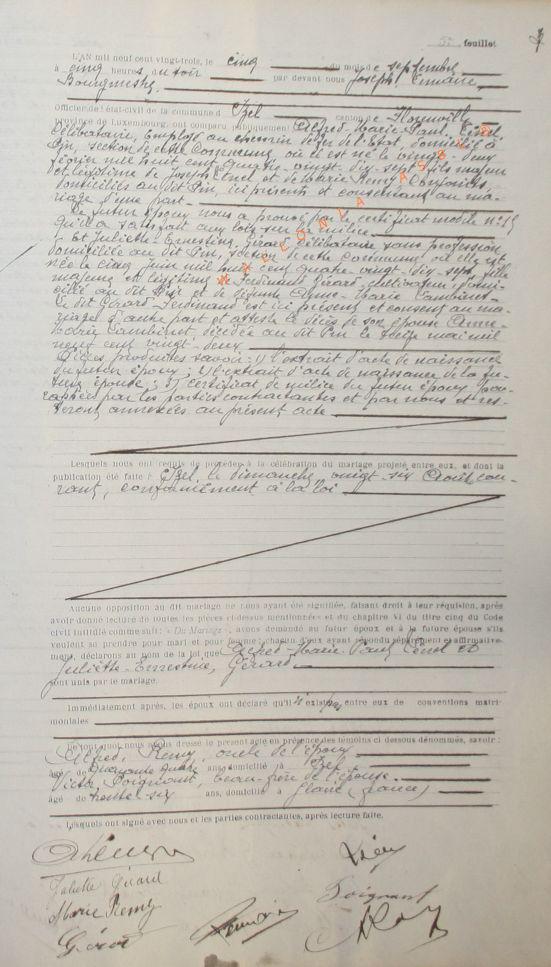 5e feuillet
L'AN mil neuf cent vingt-trois, le cinq du mois de septembre
à cinq heures du soir par devant nous Joseph
Bourgmestre
Officier de l'état-civil de la commune d'Izel, canton de Florenville
province de Luxembourg, ont comparu publiquement: Alfred-Marie-Paul
célibataire, Employé au chemin de fer de l'Etat, domicilié à
Pin, section de cette Commune, où il est né le vingt-deux
février mil huit cent quatre-vingt-dix-sept fils majeur
et légitime de Joseph et de Marie Remy conjoints,
domiciliés au dit Pin, ici présents et consentant au ma-
riage d'une part.
Le futur époux nous a prouvé par le certificat modèle n°
qu'il a satisfait aux lois sur la milice
Et Juliette-Ernestine, Gérard célibataire sans profession
domiciliée au dit Pin, section de cette Commune où elle est
née le cinq juin mil huit cent quatre-vingt-dix-sept, fille
majeure et légitime de Ferdinand Gérard, cultivateur, domi-
cilié au dit Pin et de défunte Anne-Marie Cambinet
le dit Gérard-Ferdinand est ici présent et consent au ma-
riage d'autre part et atteste le décès de son épouse Anne-
Marie Cambinet décédée au dit Pin le mai mil
neuf cent vingt-deux
Pièces produites savoir: 1) l'extrait d'acte de naissance
du futur époux; 2) l'extrait d'acte de naissance de la fu-
ture épouse; 3) certificat de milice du futur époux
par les parties contractantes et par nous et res-
teront annexées au présent acte
Lesquels nous ont requis de procéder à la célébration du mariage projeté entre eux, et dont la
publication été faite à Izel, le dimanche, vingt-six Août, cou-
rant, conformément à la loi
Aucune opposition au dit mariage ne nous ayant été signifiée, faisant droit à leur réquision, après
avoir donné lecture de toutes les pièces ci-dessus mentionnées et du chapitre VI du titre cinq du Code
civil intitulé comme suit: « Du Mariage », avons demandé au futur époux et à la future épouse s'ils
veulent se prendre pour mari et pour femme; chacun d'eux ayant répondu séparément et affirmative-
ment, déclarons au nom de la loi que Alfred-Marie-Paul, et
Juliette-Ernestine, Gérard
sont unis par le mariage.
Immédiatement après, les époux ont déclaré qu'il n'existe pas entre eux de conventions matri-
moniales
De tout quoi nous avons dressé le présent acte en présence des témoins ci dessous dénommés, savoir:
Alfred, Remy, oncle de l'époux
âgé de quarante quatre ans domicilié à Izel
Victor, Soignant, beau-frère de l'épouse
âgé de trente-six ans, domicilié à (France)
Lesquels ont signé avec nous et les parties contractantes, après lecture faite.
Juliette Gérard
Marie Remy
Soignant
Gérard